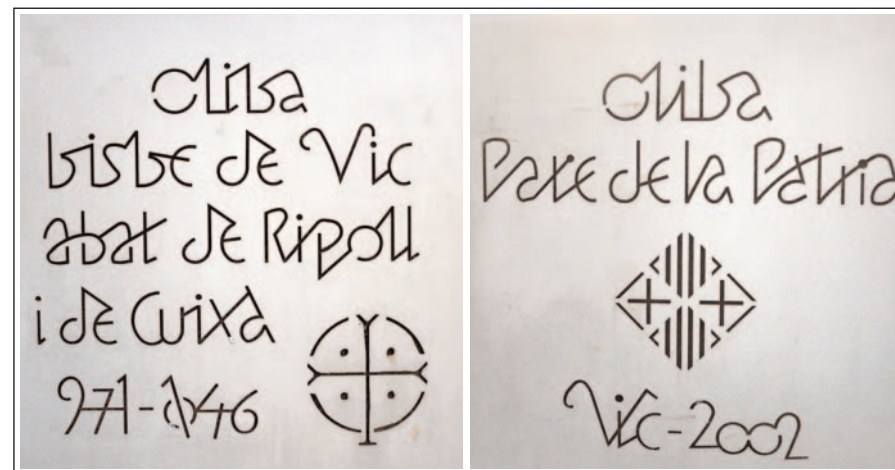 Oliba
bisbe de Vic
abat de Ripoll
i de Cuixà
971-1046
Oliba
Pare de la Pàtria
Vic-2002